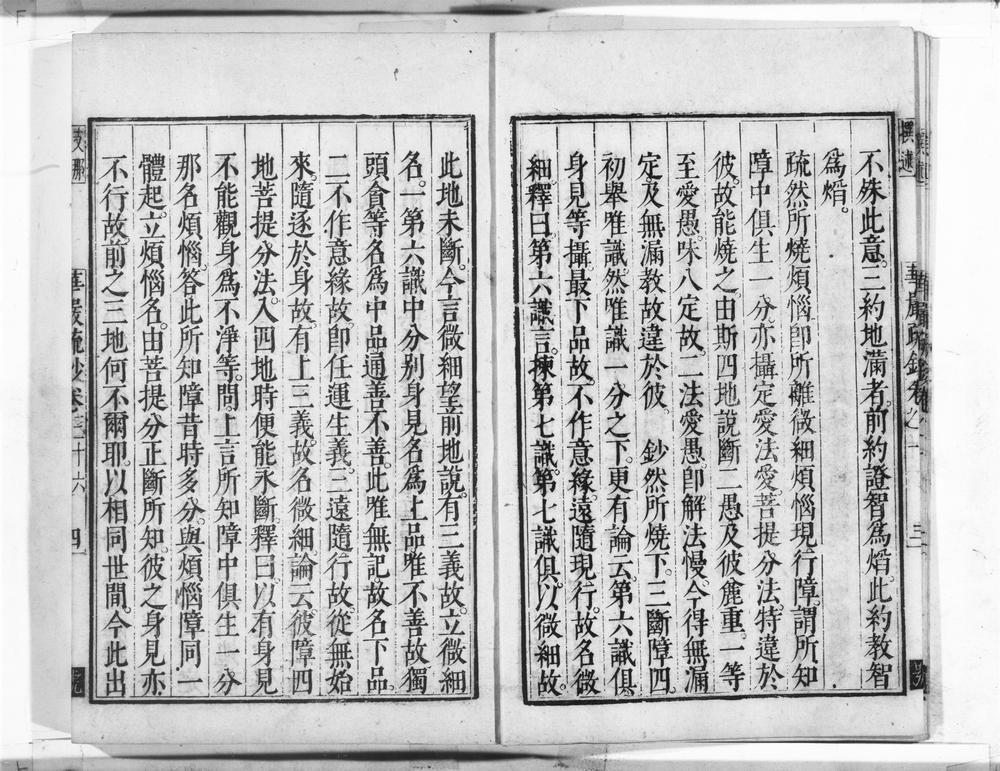 不殊此意。三約地滿者。前約證智爲焰。此約教智
爲焰。
疏然所燒煩惱卽所離微細煩惱現行障。謂所知
障中俱生一分。亦攝定愛法愛。菩提分法。特違於
彼。故能燒之。由斯四地說斷二愚及彼麤重。一等
至愛愚。味八定故。二法愛愚。卽解法慢。今得無漏
定及無漏教。故違於彼。　鈔然所燒下。三斷障。四
初舉唯識。然唯識一分之下。更有論云。第六識俱
身見等攝。最下品故。不作意緣。遠隨現行。故名微
細。釋曰。第六識言。揀第七識。第七識俱。以微細故。
此地未斷。今言微細。望前地說。有三義故。立微細
名。一第六識中分别身見。名爲上品。唯不善故。獨
頭貪等。名爲中品。通善不善。此唯無記。故名下品。
二不作意緣故。卽任運生義。三遠隨行故。從無始
來。隨逐於身故。有上三義。故名微細。論云。彼障四
地菩提分法。入四地時。便能永斷。釋曰。以有身見
不能觀身爲不淨等。問。上言所知障中俱生一分
那名煩惱。答。此所知障。昔時多分。與煩惱障同一
體起。立煩惱名。由菩提分正斷所知。彼之身見亦
不行故。前之三地何不爾耶。以相同世間。今此出
華嚴疏鈔卷三十六
四